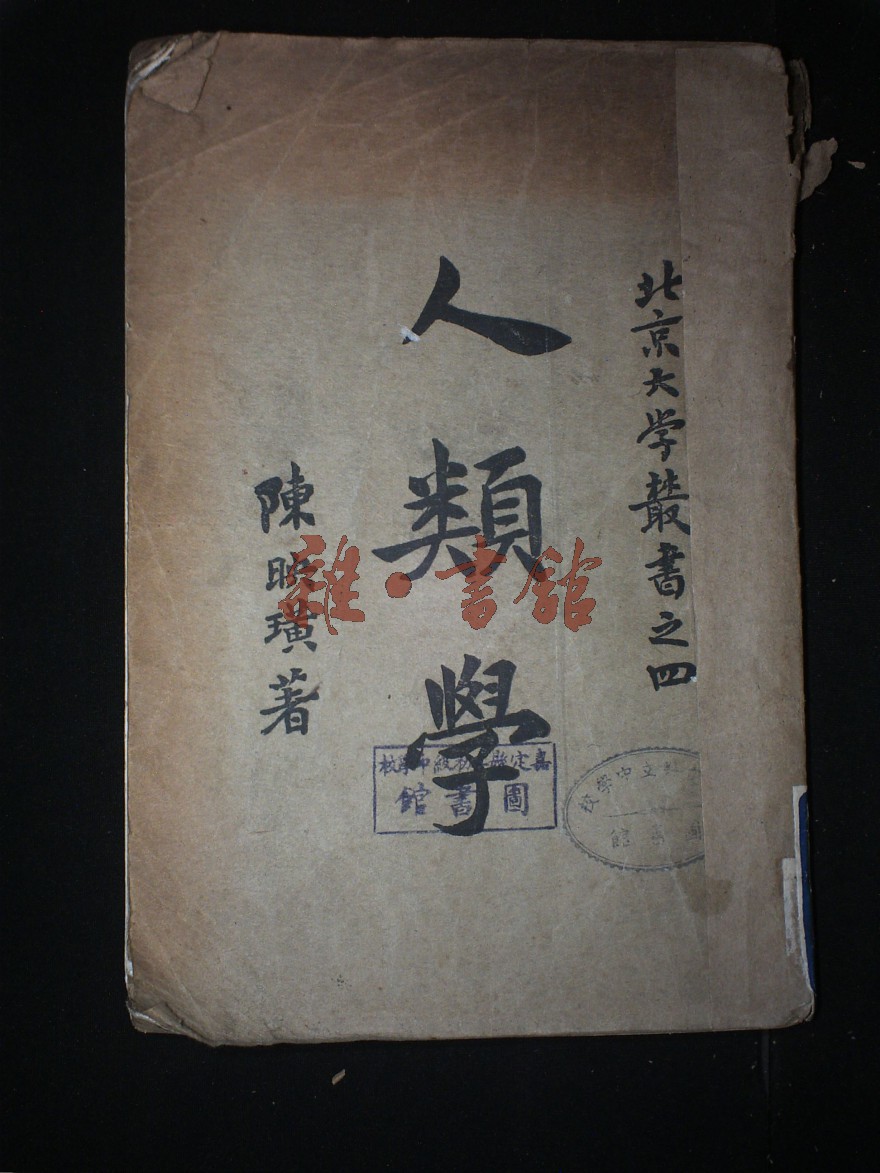 北京大学叢書之四
人類學
陳映璜著
雜·書館
嘉定縣初級中學校
圖書館
立中學校
館